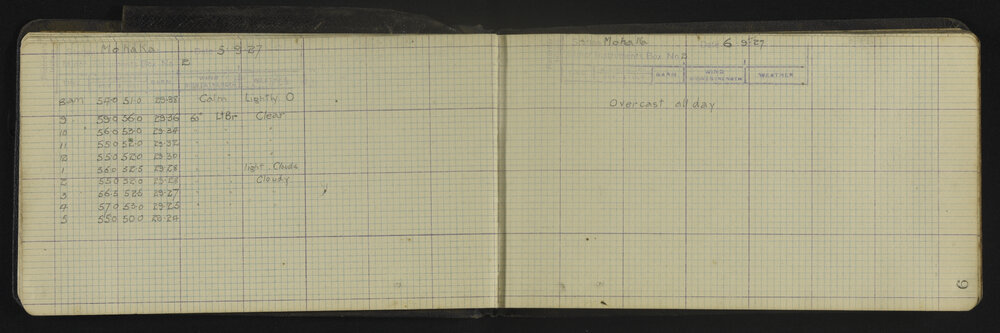 Mohaka 5·9·27
B
WIND
WEATHER
8am 54·0 51·0 29·38 Calm Lightly O
9 59·0 56·0 29·36 60° Lt Br Clear
10 56·0 53·0 29·34 " " "
11 55·0 52·0 29·32 " " "
12 55·0 52·0 29·30 " " "
1 56·0 52·5 29·28 " " light Clouds
2 55·0 52·0 29·28 " " Cloudy
3 56·5 52·5 29·27 " " "
4 57·0 53·0 29·25 " " "
5 55·0 50·0 29·24 " "
Mohaka Date 6 9·27
Instruments Box No. B
BARO WIND WEATHER
Overcast all day
6